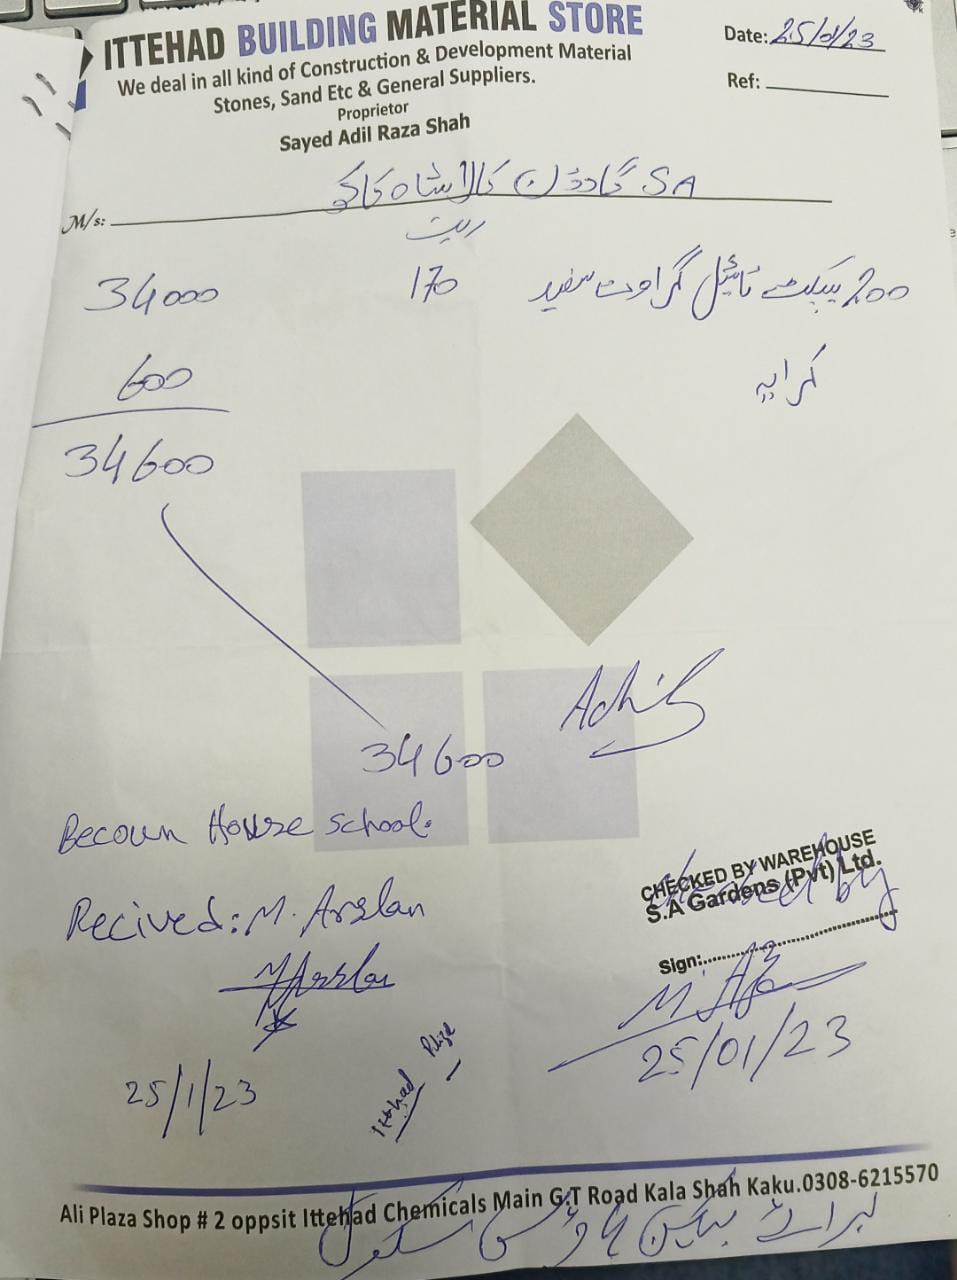 ITTEHAD BUILDING MATERIAL STORE
We deal in all kind of Construction & Development Material
Stones, Sand Etc & General Suppliers.
Proprietor
Sayed Adil Raza Shah
Date: 25/01/23
Ref:
M/s: SA گارڈن کالا شاہ کاکو
ریٹ
200 پیکٹ ٹائیل گراوٹ سفید 170 34000
کرایہ 600
34600
34600
Becoun House school.
Recived: M. Arslan
M Arslan
25/1/23
Ittehad
Checked by
CHECKED BY WAREHOUSE
S.A Gardens (Pvt) Ltd.
Sign:
25/01/23
Ali Plaza Shop # 2 oppsit Ittehad Chemicals Main G.T Road Kala Shah Kaku.0308-6215570
برائے بیکن ہاؤس سکول